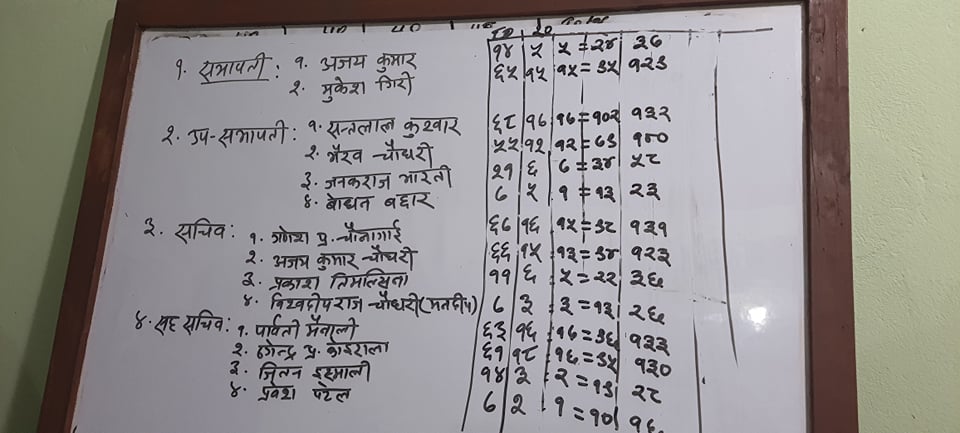 ५० २० Total
१. सभापती : १. अजय कुमार १४ ५ ५ = २४ ३७
२. मुकेश गिरी ६५ १५ १५ = ३५ १२३
२. उप-सभापती : १. सन्तलाल कुश्वार ६८ १७ १७ = १०२ १३२
२. भैरव चौधरी ५५ १२ १२ = ६३ १४०
३. जनकराज भारती २१ ६ ७ = ३४ ५८
४. बहादुर ७ ५ १ = १३ २३
३. सचिव : १. गणेश प्र. चौलागाईं ६७ १६ १५ = ३८ १३१
२. अजय कुमार चौधरी ६६ १५ १३ = ३४ १२३
३. प्रकाश तिमल्सिना ११ ६ ५ = २२ ३६
४. विश्वदीपराज चौधरी (मनदीप) ७ ३ ३ = १३ २६
४. सह सचिव : १. पार्वती मैनाली ६३ १६ १७ = ३६ १३३
२. प्र. कोइराला ६१ १८ १६ = ३५ १३०
३. जितन इहमाली १४ ३ २ = १३ २८
४. प्रवेश पटेल ७ २ १ = १० १६